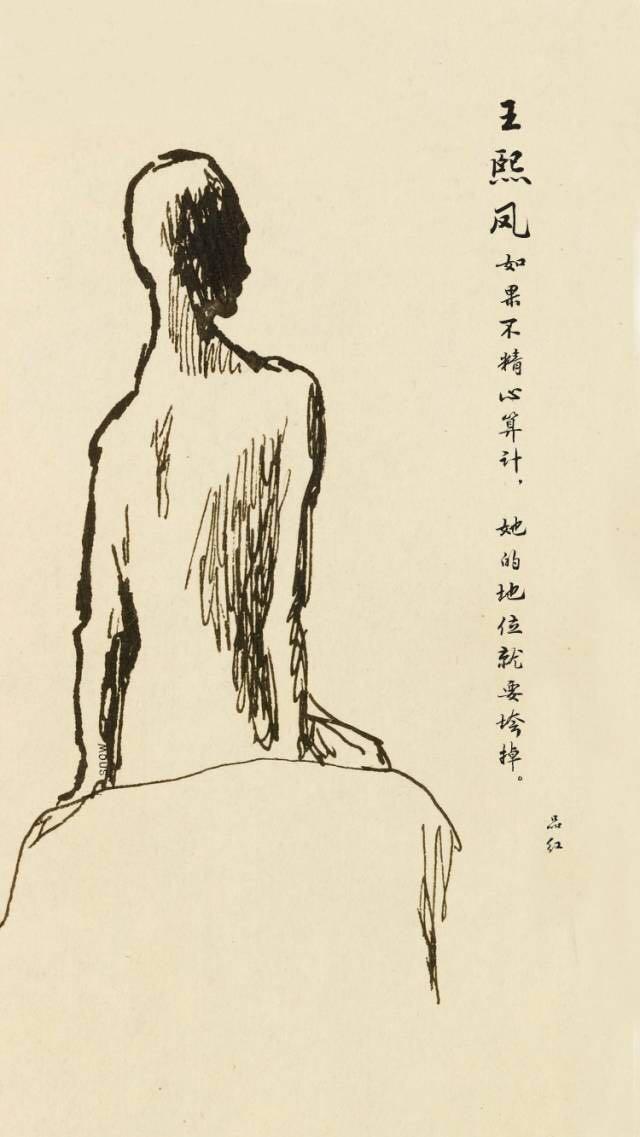 王熙凤如果不精心算计，她的地位就要垮掉。
品红
WOUS